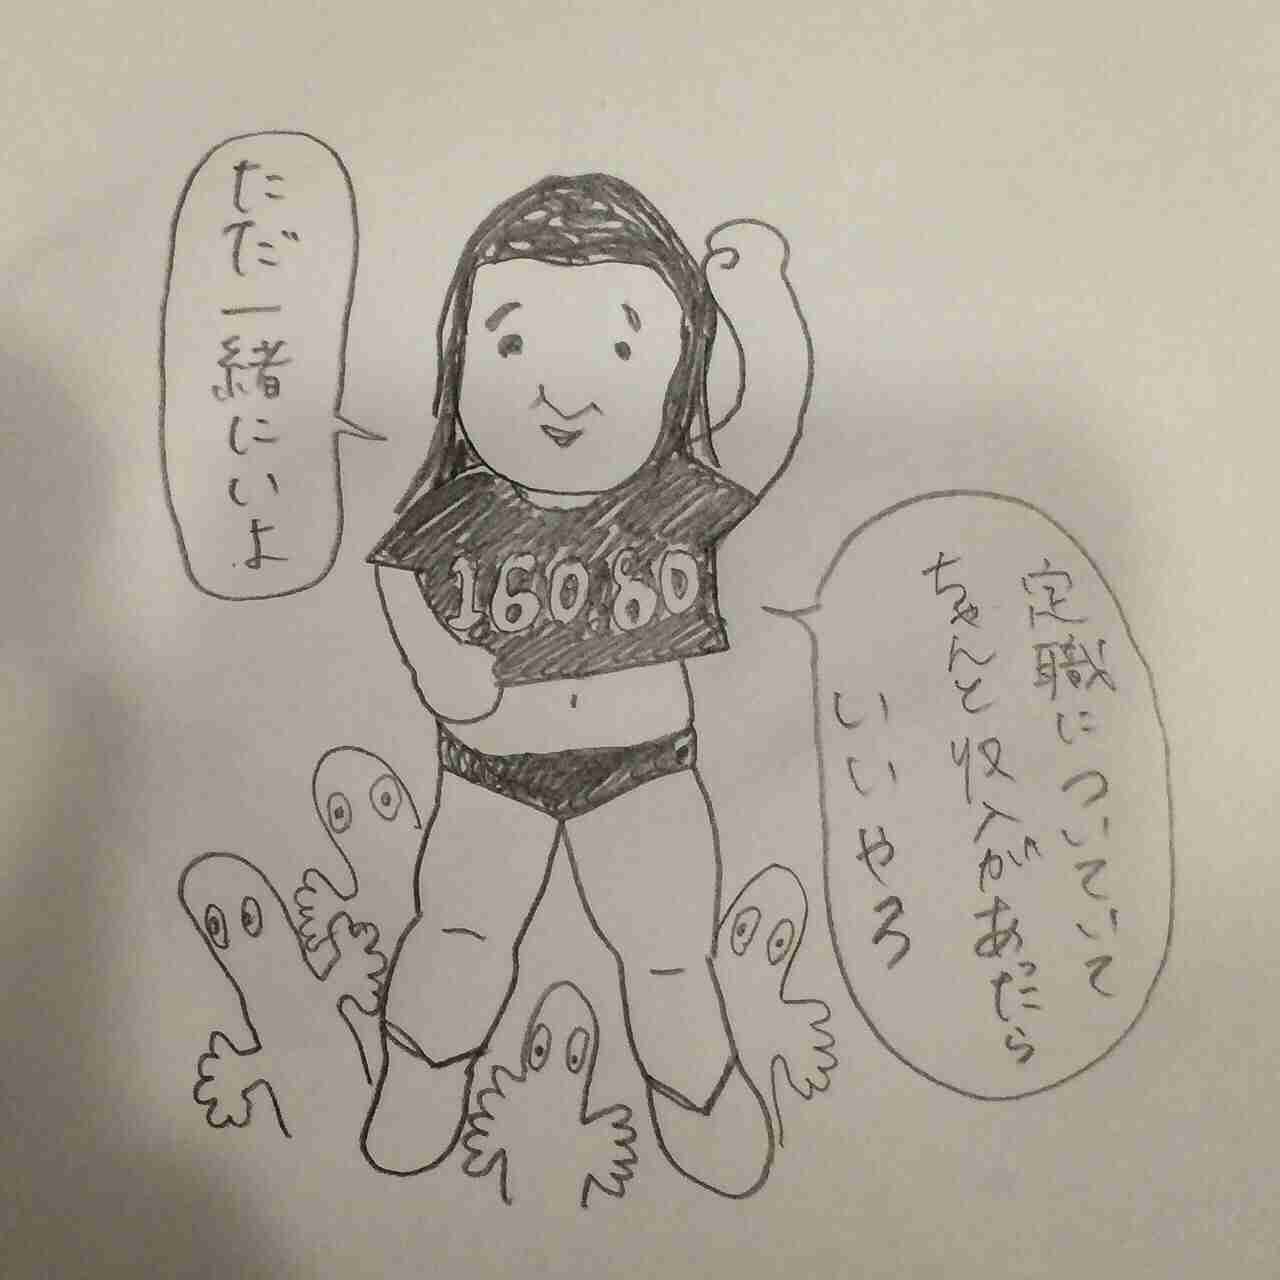 ただ一緒にいよ
16080
定職についていて
ちゃんと収入があったら
いいやろ